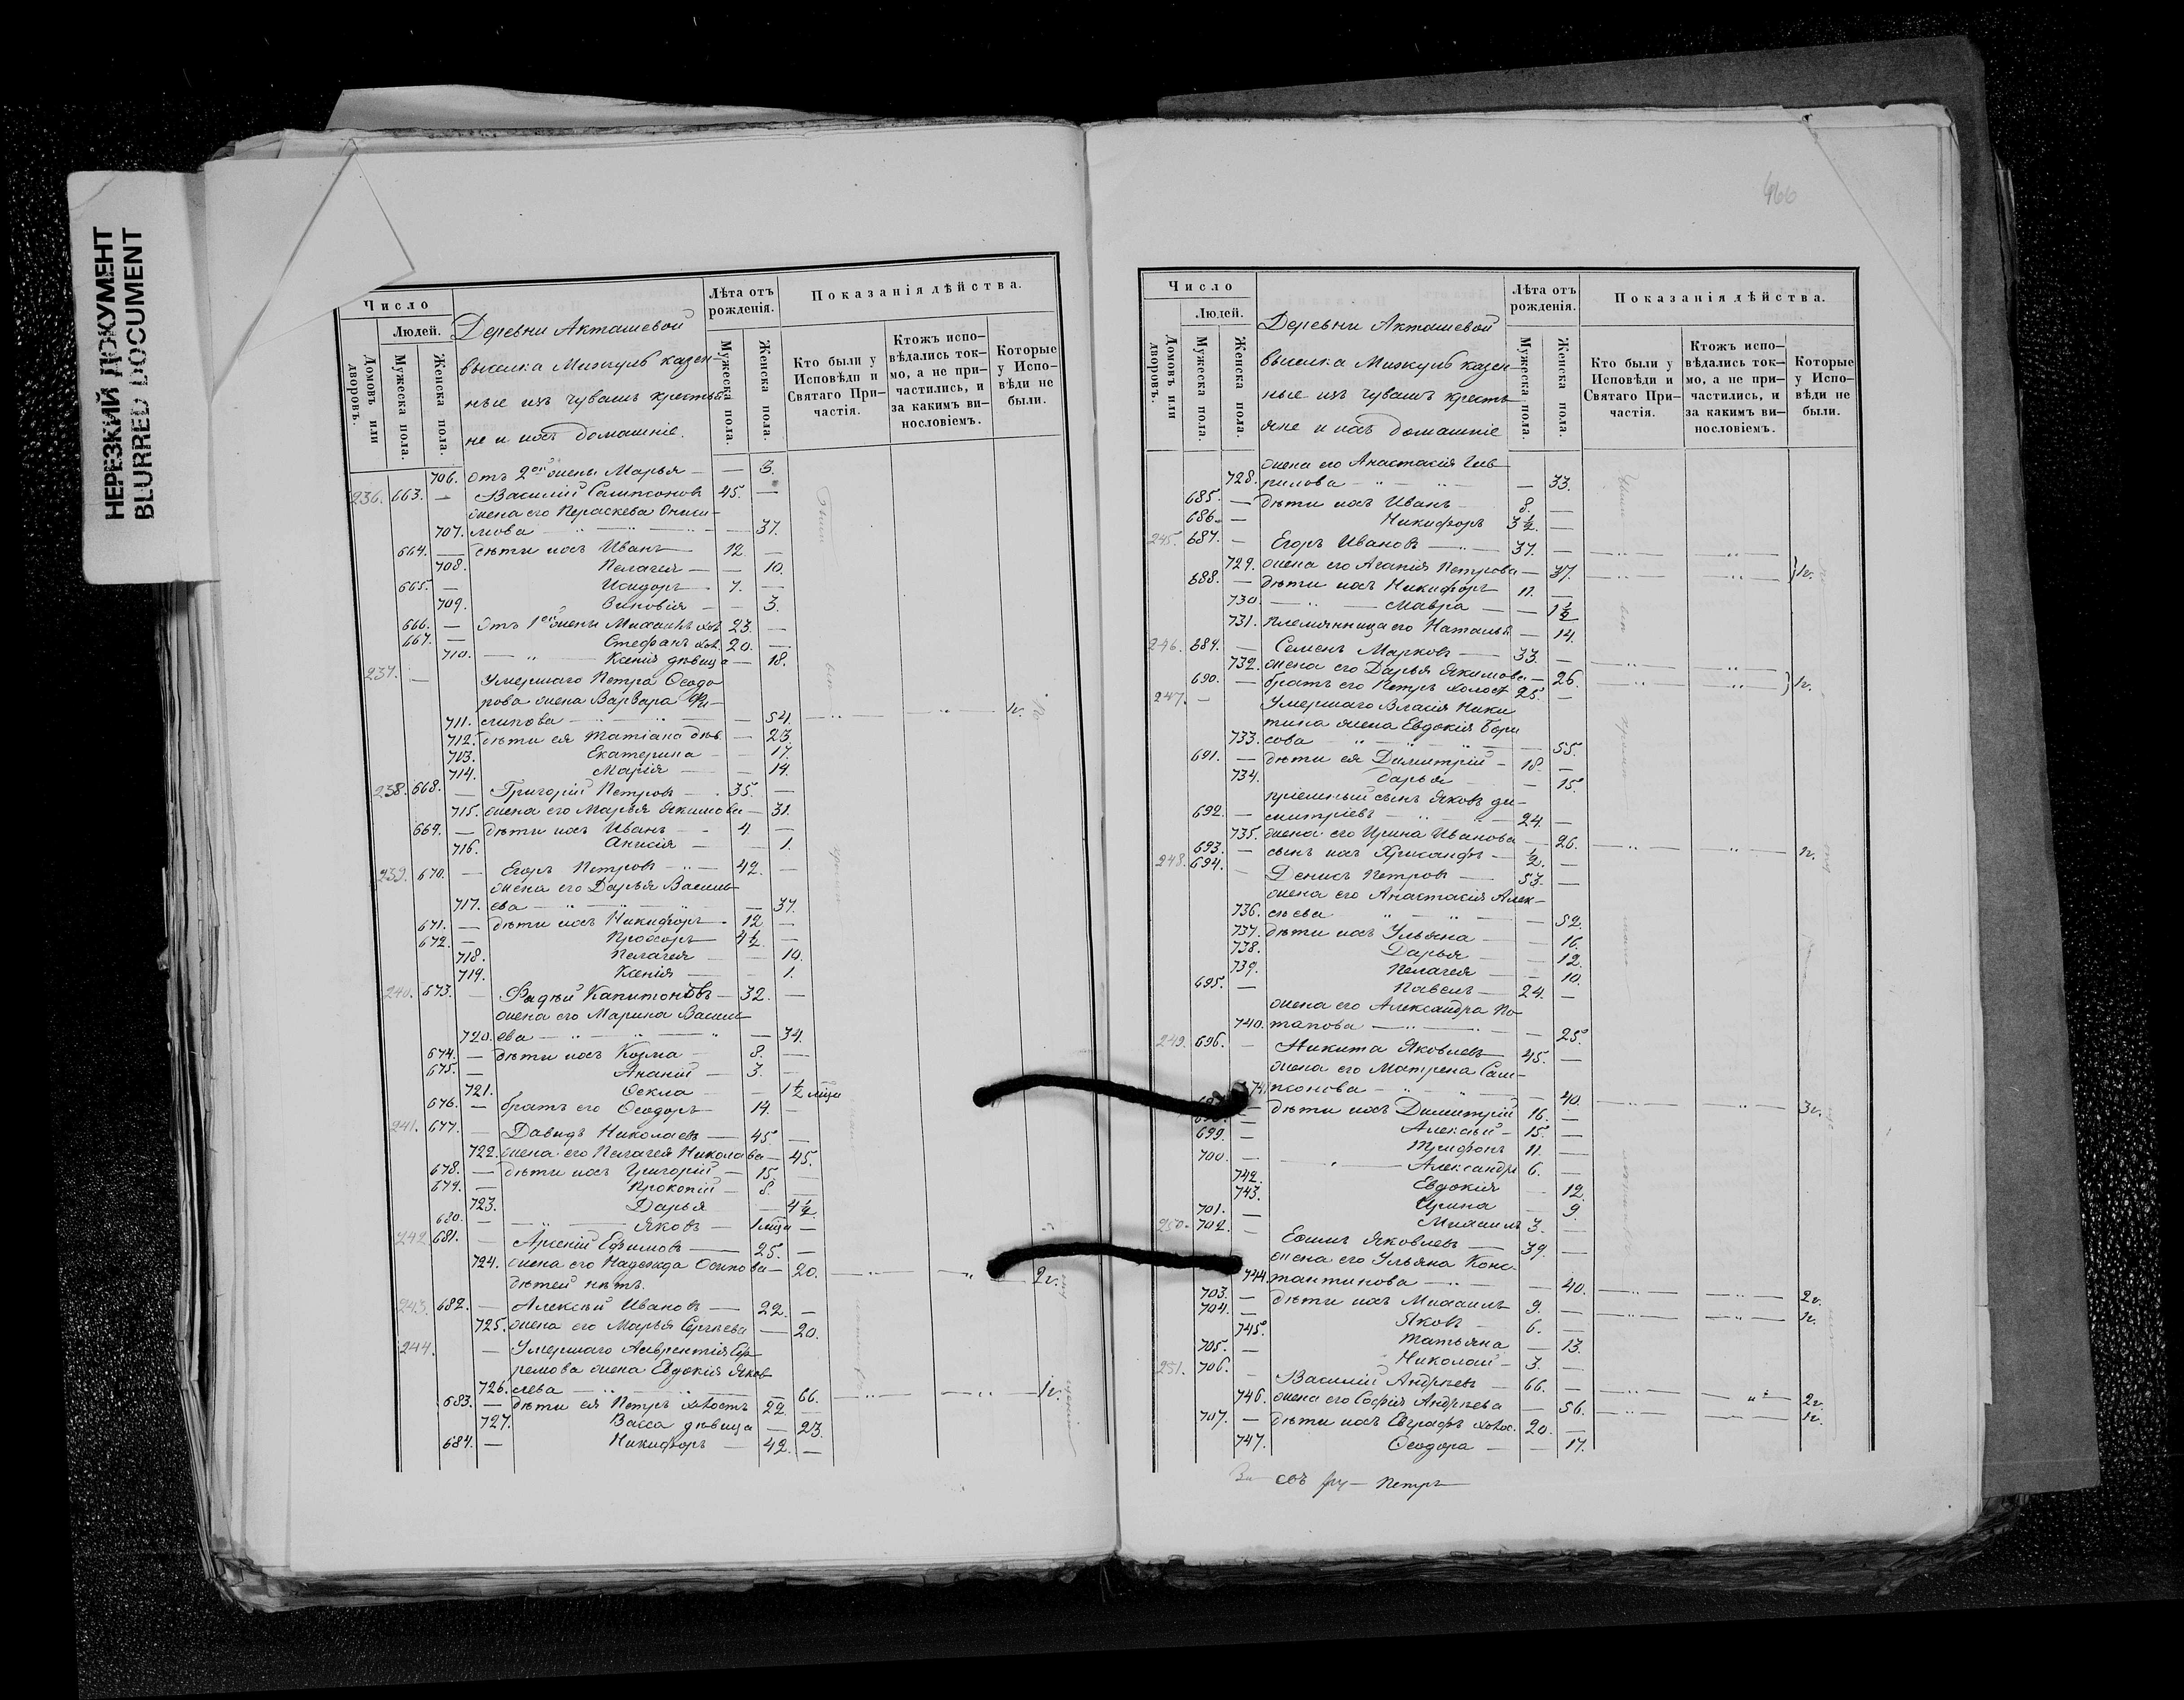 НЕРЕЗКИЙ ДОКУМЕНТ
BLURRED DOCUMENT
Число
Людей.
Домовъ или дворовъ.
Мужеска пола.
Женска пола.
Деревни Акташевой
выселка Мижкулъ казен-
ные изъ чувашъ крестья
не и ихъ домашніе.
Лѣта отъ рожденія.
Мужеска пола.
Женска пола.
Показанія дѣйства.
Кто были у Исповѣди и Святаго При-частія.
Ктожъ испо-вѣдались ток-мо, а не при-частились, и за какимъ ви-нословіемъ.
Которые у Испо-вѣди не были.
706. отъ 2ой жены Марья — — 3.
236. 663. — Василій Сампсоновъ 45. —
жена его Параскева Ониси-
707. мова — 37.
664. — дѣти ихъ Иванъ 12. —
708. Пелагея — 10.
665. — Исидоръ 7. —
709. Зиновія — 3.
666. — Отъ 1ой жены Михаилъ хол. 23. —
667. — Стефанъ хол. 20. —
710. Ксенія дѣвица — 18.
237. — Умершаго Петра Ѳеодо
рова жена Варвара Фи-
711. липова — 54. 1г.
712. дѣти ея Татіана дѣв. — 23
713. Екатерина — 17.
714. Марія — 14.
238. 668. — Григорій Петровъ 35. —
715. жена его Марья Якимова — 31.
669. — дѣти ихъ Иванъ 4 —
716. Анисія — 1.
239. 670. — Егоръ Петровъ 42. —
жена его Дарья Василь
717. ева — 37.
671. — дѣти ихъ Никифоръ 12 —
672. — Прохоръ 4½ —
718. Пелагея — 10.
719. Ксенія — 1.
240. 673. — Фадѣй Капитоновъ 32. —
жена его Марина Васил
720. ева — 34.
674. — дѣти ихъ Козма 8. —
675. — Ананій 3. —
721. Ѳекла — 1½ мѣца
676. — братъ его Ѳеодоръ 14. —
241. 677. — Давидъ Николаевъ 45. —
722. жена его Пелагея Николаева — 45.
678. — дѣти ихъ Григорій 15. —
679. — Прокопій 8. —
723. Дарья — 4½
680. — Яковъ 1 мѣца —
242. 681. — Арсеній Ефимовъ 25. —
724. жена его Надежда Осипова — 20. 2г.
дѣтей нѣтъ.
243. 682. — Алексѣй Ивановъ 22. —
725. жена его Марья Сергѣева — 20.
244. — Умершаго Лаврентія Еф
ремова жена Евдокія Яков
726. лева — 66. 1г.
683. — дѣти ея Петръ холостъ 22. —
727. Васса дѣвица — 23.
684. — Никифоръ 42. —
466
Число
Людей.
Домовъ или дворовъ.
Мужеска пола.
Женска пола.
Деревни Акташевой
выселка Мижкулъ казен-
ные изъ чувашъ кресть
яне и ихъ домашніе
Лѣта отъ рожденія.
Мужеска пола.
Женска пола.
Показанія дѣйства.
Кто были у Исповѣди и Святаго При-частія.
Ктожъ испо-вѣдались ток-мо, а не при-частились, и за какимъ ви-нословіемъ.
Которые у Испо-вѣди не были.
жена его Анастасія Гав
728. рилова — 33.
685. — дѣти ихъ Иванъ 8. —
686. — Никифоръ 3½. —
245. 687. — Егоръ Ивановъ 37. —
729. жена его Агапія Петрова — 37. 1г.
688. — дѣти ихъ Никифоръ 11. —
730. Мавра — 1½
731. племянница его Наталья — 14.
246. 689. — Семенъ Марковъ 33. —
732. жена его Дарья Якимова — 26.
690. — братъ его Петръ холост 25. — 1г.
247. — Умершаго Власія Ники
тина жена Евдокія Бори
733. сова — 55.
691. — дѣти ея Димитрій 18. —
734. Дарья — 15.
пріемный сынъ Яковъ ди-
692. — митріевъ 24. —
735. жена его Ирина Иванова — 26.
693. — сынъ ихъ Хрисанфъ ½. — 1г.
248. 694. — Денисъ Петровъ 53. —
жена его Анастасія Алек-
736. сѣева — 52.
737. дѣти ихъ Ульяна — 16.
738. Дарья — 12.
739. Пелагея — 10.
695. — Павелъ 24. —
жена его Александра По
740. тапова — 25.
249. 696. — Никита Яковлевъ 45. —
жена его Матрена Сам-
741. псонова — 40.
— дѣти ихъ Димитрій 16. — 3г.
699. — Алексѣй 15. —
700. — Трифонъ 11. —
Александр 6. —
742. Евдокія — 12.
743. Ирина — 9.
701. — Михаилъ 3. —
250. 702. — Ефимъ Яковлевъ 39. —
жена его Ульяна Конс-
744. тантинова — 40.
703. — дѣти ихъ Михаилъ 9. — 2г.
704. — Яковъ 6. — 1г.
745. Татьяна — 13.
705. — Николай 3. —
251. 706. — Василій Андреевъ 66. —
746. жена его Софія Андреева — 56. 2г.
707. — дѣти ихъ Евграфъ холос. 20. — 1г.
747. Ѳеодора — 17.
Петръ